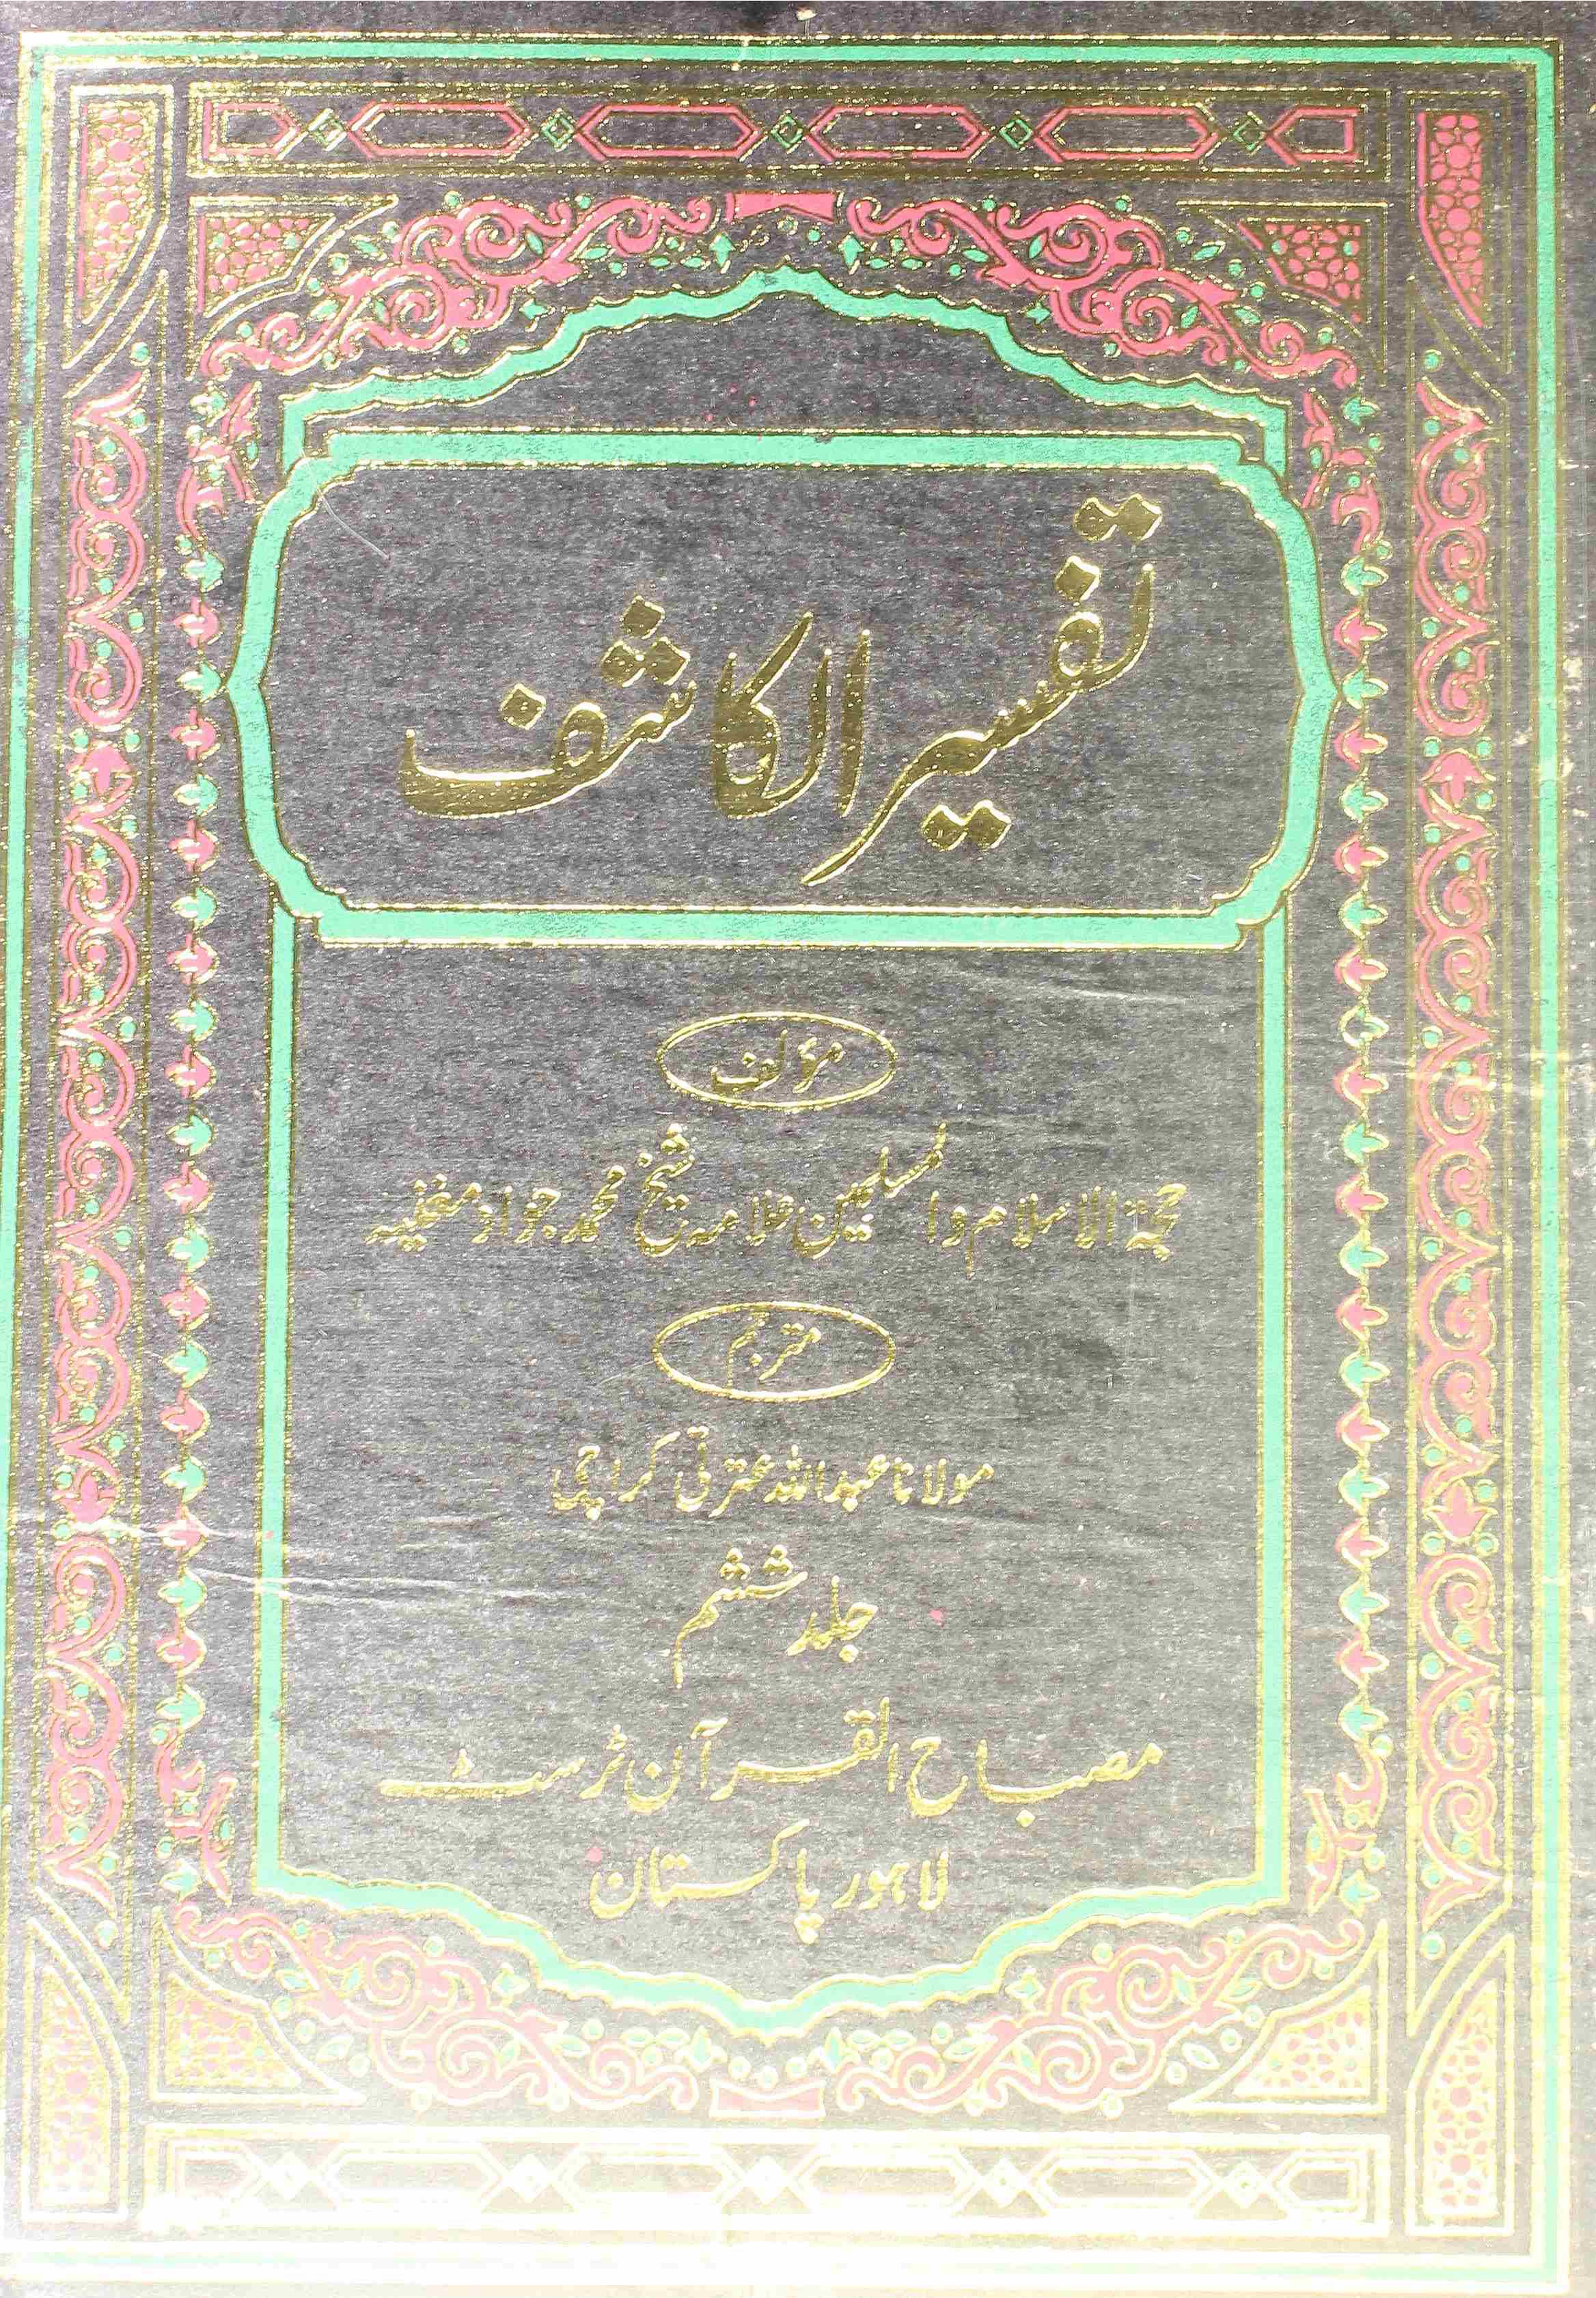 تفسیر الکاشف
مؤلف
حجۃ الاسلام والمسلمین علامہ شیخ محمد جواد مغنیہ
مترجم
مولانا عبداللہ عترتی کراچی
جلد ششم
مصباح القرآن ٹرسٹ
لاہور پاکستان